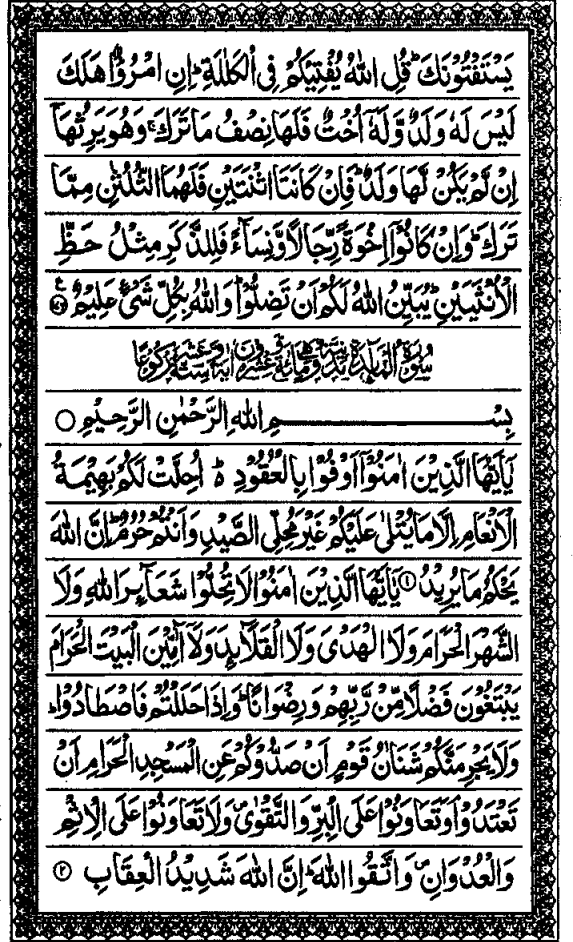 يَسْتَفْتُوْنَكَ ؕ قُلِ اللّٰهُ يُفْتِيْكُمْ فِي الْكَلٰلَةِ ؕ اِنِ امْرُؤٌا هَلَكَ
لَيْسَ لَهٗ وَلَدٌ وَّلَهٗۤ اُخْتٌ فَلَهَا نِصْفُ مَا تَرَكَ ۚ وَهُوَ يَرِثُهَاۤ
اِنْ لَّمْ يَكُنْ لَّهَا وَلَدٌ ؕ فَاِنْ كَانَتَا اثْنَتَيْنِ فَلَهُمَا الثُّلُثٰنِ مِمَّا
تَرَكَ ؕ وَاِنْ كَانُوْۤا اِخْوَةً رِّجَالًا وَّنِسَآءً فَلِلذَّكَرِ مِثْلُ حَظِّ
الْاُنْثَيَيْنِ ؕ يُبَيِّنُ اللّٰهُ لَكُمْ اَنْ تَضِلُّوْا ؕ وَاللّٰهُ بِكُلِّ شَيْءٍ عَلِيْمٌ
سُوْرَةُ الْمَآئِدَةِ مَدَنِيَّةٌ وَّهِيَ مِائَةٌ وَّعِشْرُوْنَ اٰيَةً وَّسِتَّةَ عَشَرَ رُكُوْعًا
بِسْمِ اللّٰهِ الرَّحْمٰنِ الرَّحِيْمِ ○
يٰۤاَيُّهَا الَّذِيْنَ اٰمَنُوْۤا اَوْفُوْا بِالْعُقُوْدِ ؕ اُحِلَّتْ لَكُمْ بَهِيْمَةُ
الْاَنْعَامِ اِلَّا مَا يُتْلٰى عَلَيْكُمْ غَيْرَ مُحِلِّي الصَّيْدِ وَاَنْتُمْ حُرُمٌ ؕ اِنَّ اللّٰهَ
يَحْكُمُ مَا يُرِيْدُ ۝۱ يٰۤاَيُّهَا الَّذِيْنَ اٰمَنُوْا لَا تُحِلُّوْا شَعَآئِرَ اللّٰهِ وَلَا
الشَّهْرَ الْحَرَامَ وَلَا الْهَدْيَ وَلَا الْقَلَآئِدَ وَلَاۤ آٰمِّيْنَ الْبَيْتَ الْحَرَامَ
يَبْتَغُوْنَ فَضْلًا مِّنْ رَّبِّهِمْ وَرِضْوَانًا ؕ وَاِذَا حَلَلْتُمْ فَاصْطَادُوْا ؕ
وَلَا يَجْرِمَنَّكُمْ شَنَاٰنُ قَوْمٍ اَنْ صَدُّوْكُمْ عَنِ الْمَسْجِدِ الْحَرَامِ اَنْ
تَعْتَدُوْا ۘ وَتَعَاوَنُوْا عَلَى الْبِرِّ وَالتَّقْوٰى ۪ وَلَا تَعَاوَنُوْا عَلَى الْاِثْمِ
وَالْعُدْوَانِ ۪ وَاتَّقُوا اللّٰهَ ؕ اِنَّ اللّٰهَ شَدِيْدُ الْعِقَابِ ۝۲